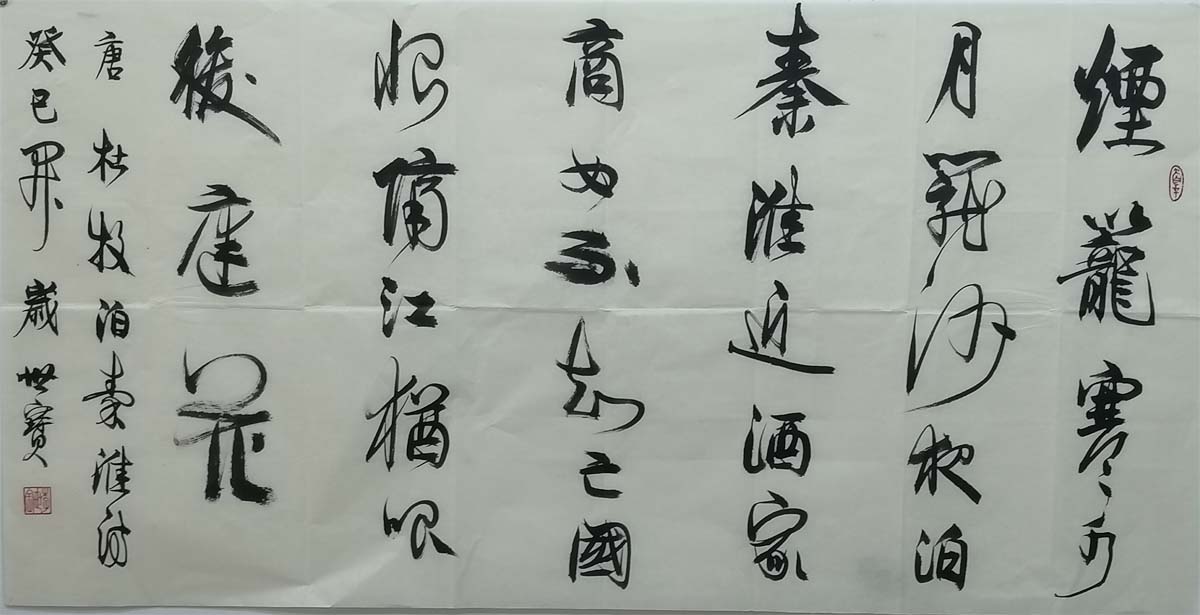 煙籠寒水
月籠沙夜泊
秦淮近酒家
商女不知亡國
恨隔江猶唱
後庭花
唐 杜牧泊秦淮詩
癸巳 歲 世寶